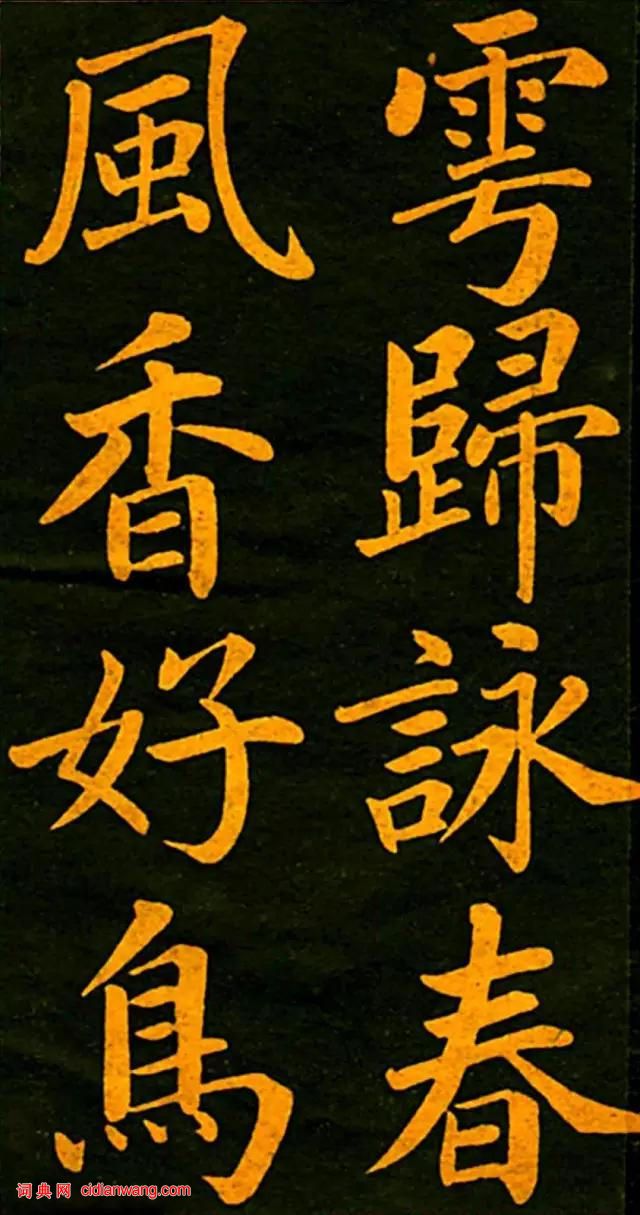 雩歸詠春
風香好鳥
词典网 cidianwang.com